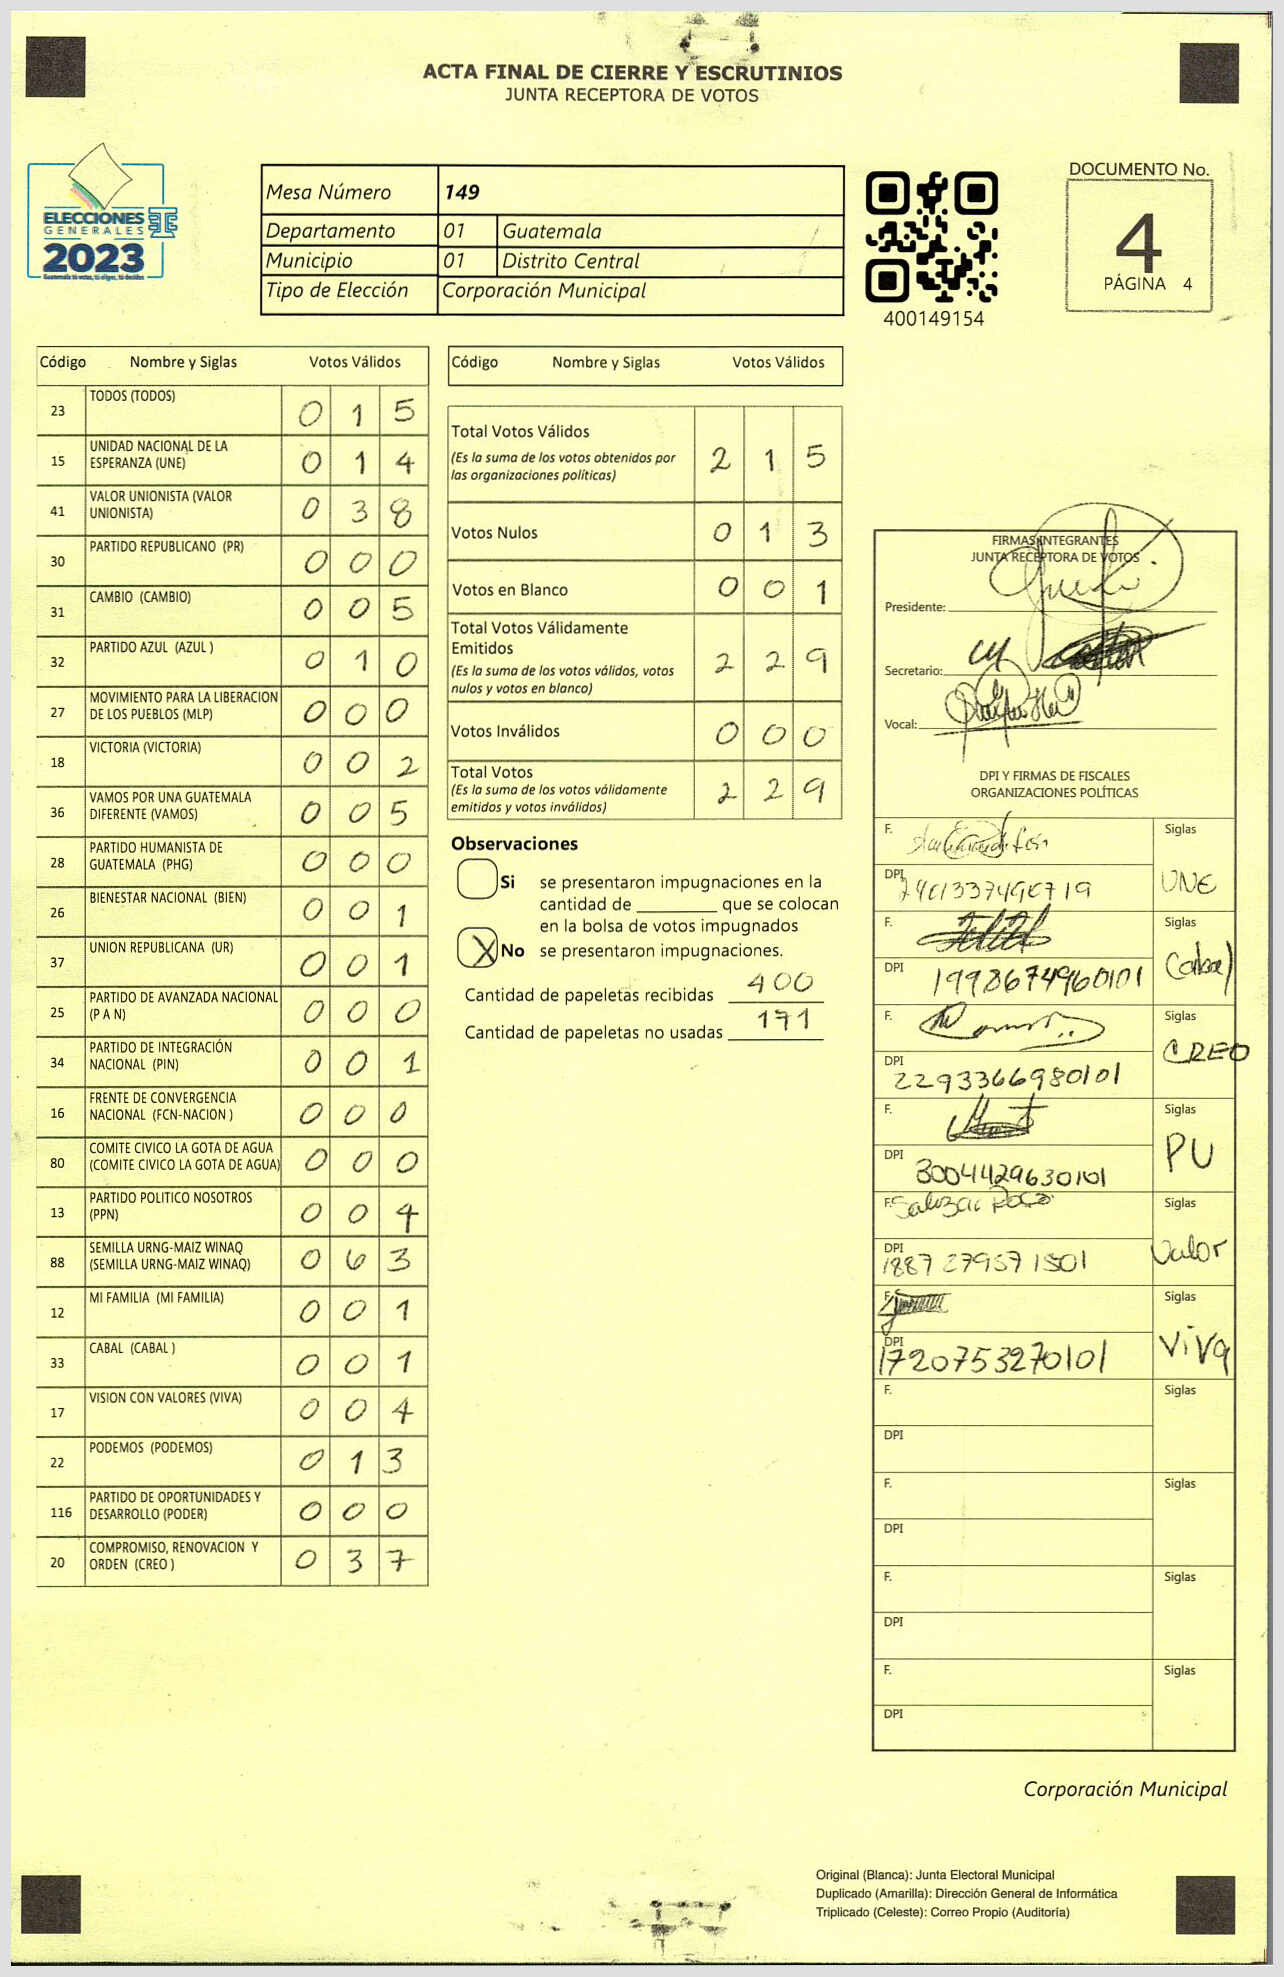 ACTA FINAL DE CIERRE Y ESCRUTINIOS
JUNTA RECEPTORA DE VOTOS
ELECCIONES
GENERALES
2023
Mesa Número 149
Departamento 01 Guatemala
Municipio 01 Distrito Central
Tipo de Elección Corporación Municipal
400149154
DOCUMENTO No.
4
PÁGINA 4
Código Nombre y Siglas Votos Válidos
23 TODOS (TODOS) 0 1 5
15 UNIDAD NACIONAL DE LA
ESPERANZA (UNE) 0 1 4
41 VALOR UNIONISTA (VALOR
UNIONISTA) 0 3 8
30 PARTIDO REPUBLICANO (PR) 0 0 0
31 CAMBIO (CAMBIO) 0 0 5
32 PARTIDO AZUL (AZUL ) 0 1 0
27 MOVIMIENTO PARA LA LIBERACION
DE LOS PUEBLOS (MLP) 0 0 0
18 VICTORIA (VICTORIA) 0 0 2
36 VAMOS POR UNA GUATEMALA
DIFERENTE (VAMOS) 0 0 5
28 PARTIDO HUMANISTA DE
GUATEMALA (PHG) 0 0 0
26 BIENESTAR NACIONAL (BIEN) 0 0 1
37 UNION REPUBLICANA (UR) 0 0 1
25 PARTIDO DE AVANZADA NACIONAL
(P A N) 0 0 0
34 PARTIDO DE INTEGRACIÓN
NACIONAL (PIN) 0 0 1
16 FRENTE DE CONVERGENCIA
NACIONAL (FCN-NACION ) 0 0 0
80 COMITE CIVICO LA GOTA DE AGUA
(COMITE CIVICO LA GOTA DE AGUA) 0 0 0
13 PARTIDO POLITICO NOSOTROS
(PPN) 0 0 4
88 SEMILLA URNG-MAIZ WINAQ
(SEMILLA URNG-MAIZ WINAQ) 0 6 3
12 MI FAMILIA (MI FAMILIA) 0 0 1
33 CABAL (CABAL ) 0 0 1
17 VISION CON VALORES (VIVA) 0 0 4
22 PODEMOS (PODEMOS) 0 1 3
116 PARTIDO DE OPORTUNIDADES Y
DESARROLLO (PODER) 0 0 0
20 COMPROMISO, RENOVACION Y
ORDEN (CREO ) 0 3 7
Código Nombre y Siglas Votos Válidos
Total Votos Válidos
(Es la suma de los votos obtenidos por
las organizaciones políticas) 2 1 5
Votos Nulos 0 1 3
Votos en Blanco 0 0 1
Total Votos Válidamente
Emitidos
(Es la suma de los votos válidos, votos
nulos y votos en blanco) 2 2 9
Votos Inválidos 0 0 0
Total Votos
(Es la suma de los votos válidamente
emitidos y votos inválidos) 2 2 9
Observaciones
Si se presentaron impugnaciones en la
cantidad de ________ que se colocan
en la bolsa de votos impugnados
X No se presentaron impugnaciones.
Cantidad de papeletas recibidas 400
Cantidad de papeletas no usadas 171
FIRMAS INTEGRANTES
JUNTA RECEPTORA DE VOTOS
Presidente:
Secretario:
Vocal:
DPI Y FIRMAS DE FISCALES
ORGANIZACIONES POLÍTICAS
F. Siglas
DPI UNE
F. Siglas
DPI 1998674960101 Cabal
F. Siglas
DPI 2293366980101 CREO
F. Siglas
DPI 3004429630101 PU
F. Siglas
DPI 1887279571501 Valor
F. Siglas
DPI 1720753270101 ViVa
F. Siglas
DPI
F. Siglas
DPI
F. Siglas
DPI
F. Siglas
DPI
Corporación Municipal
Original (Blanca): Junta Electoral Municipal
Duplicado (Amarilla): Dirección General de Informática
Triplicado (Celeste): Correo Propio (Auditoría)